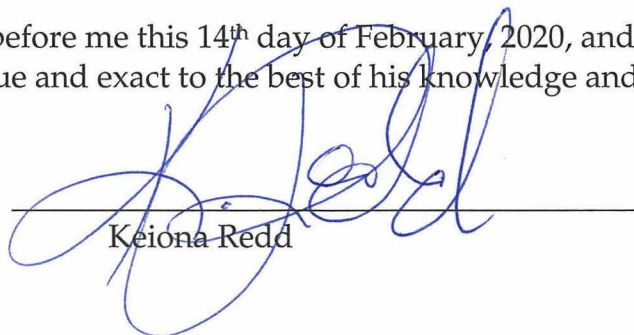 before me this 14th day of February, 2020, and
ue and exact to the best of his knowledge and
K. Redd
Keiona Redd